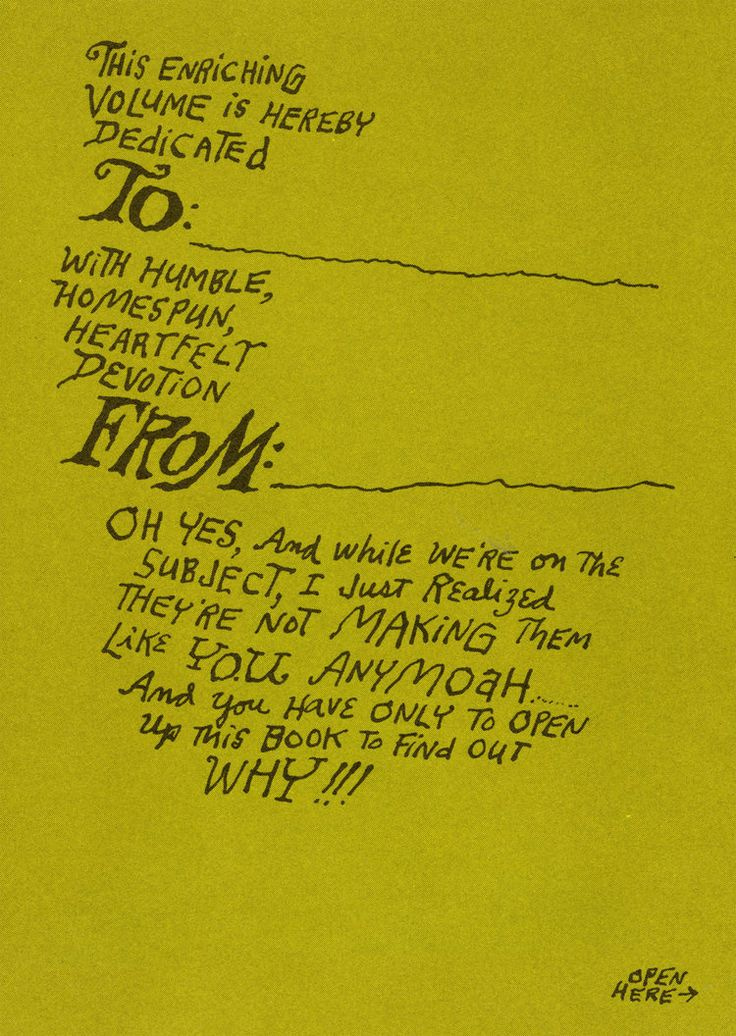 THiS ENRiCHiNG
VOLUME iS HEREBY
DEdiCATED
To:
WiTH HUMBLE,
HOMESPUN,
HEARTFELT
DEVOTiON
FROM:
OH YES, And while WE'RE on THE
SUBJECT, I Just REalizEd
THEY'RE NOT MAKiNG THEM
LiKE Y.O.U. ANYMOaH........
And you HAVE ONLY TO OPEN
Up THiS BOOK To Find OUT
WHY!!!!
OPEN
HERE→